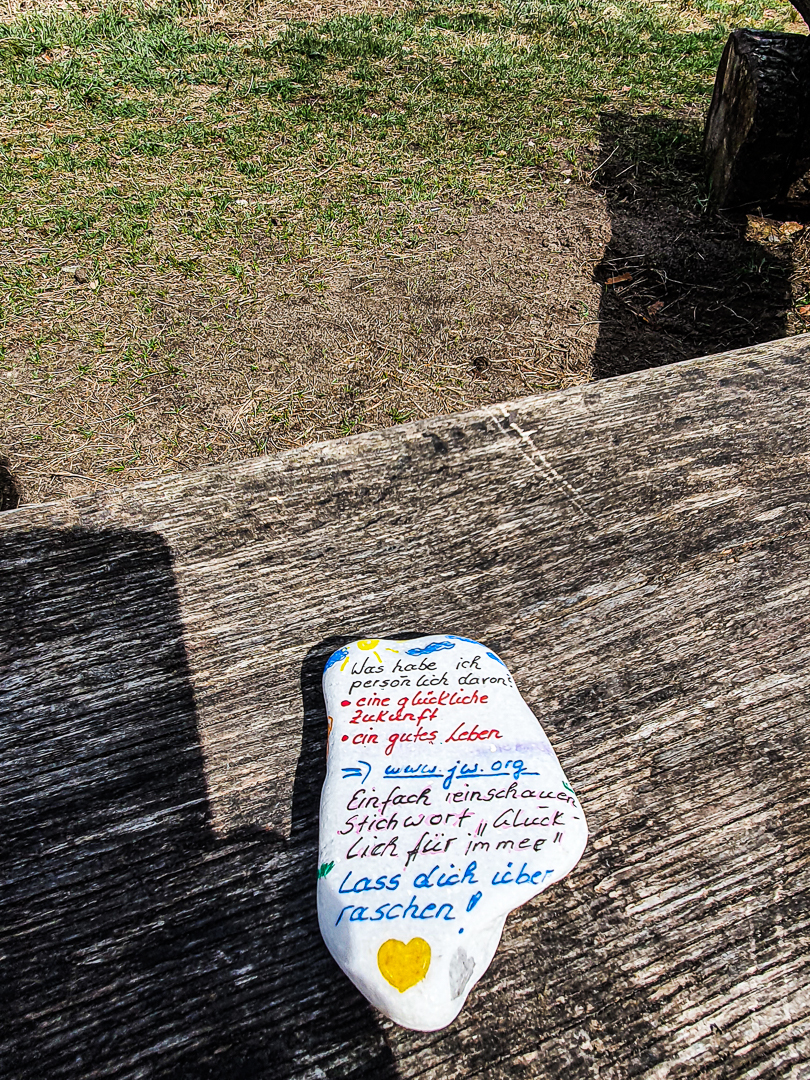 Was habe ich
persönlich davon?
• eine glückliche
Zukunft
• ein gutes Leben
=> www.jw.org
Einfach reinschauen
Stichwort „Glück-
lich für immer"
Lass dich über
raschen!